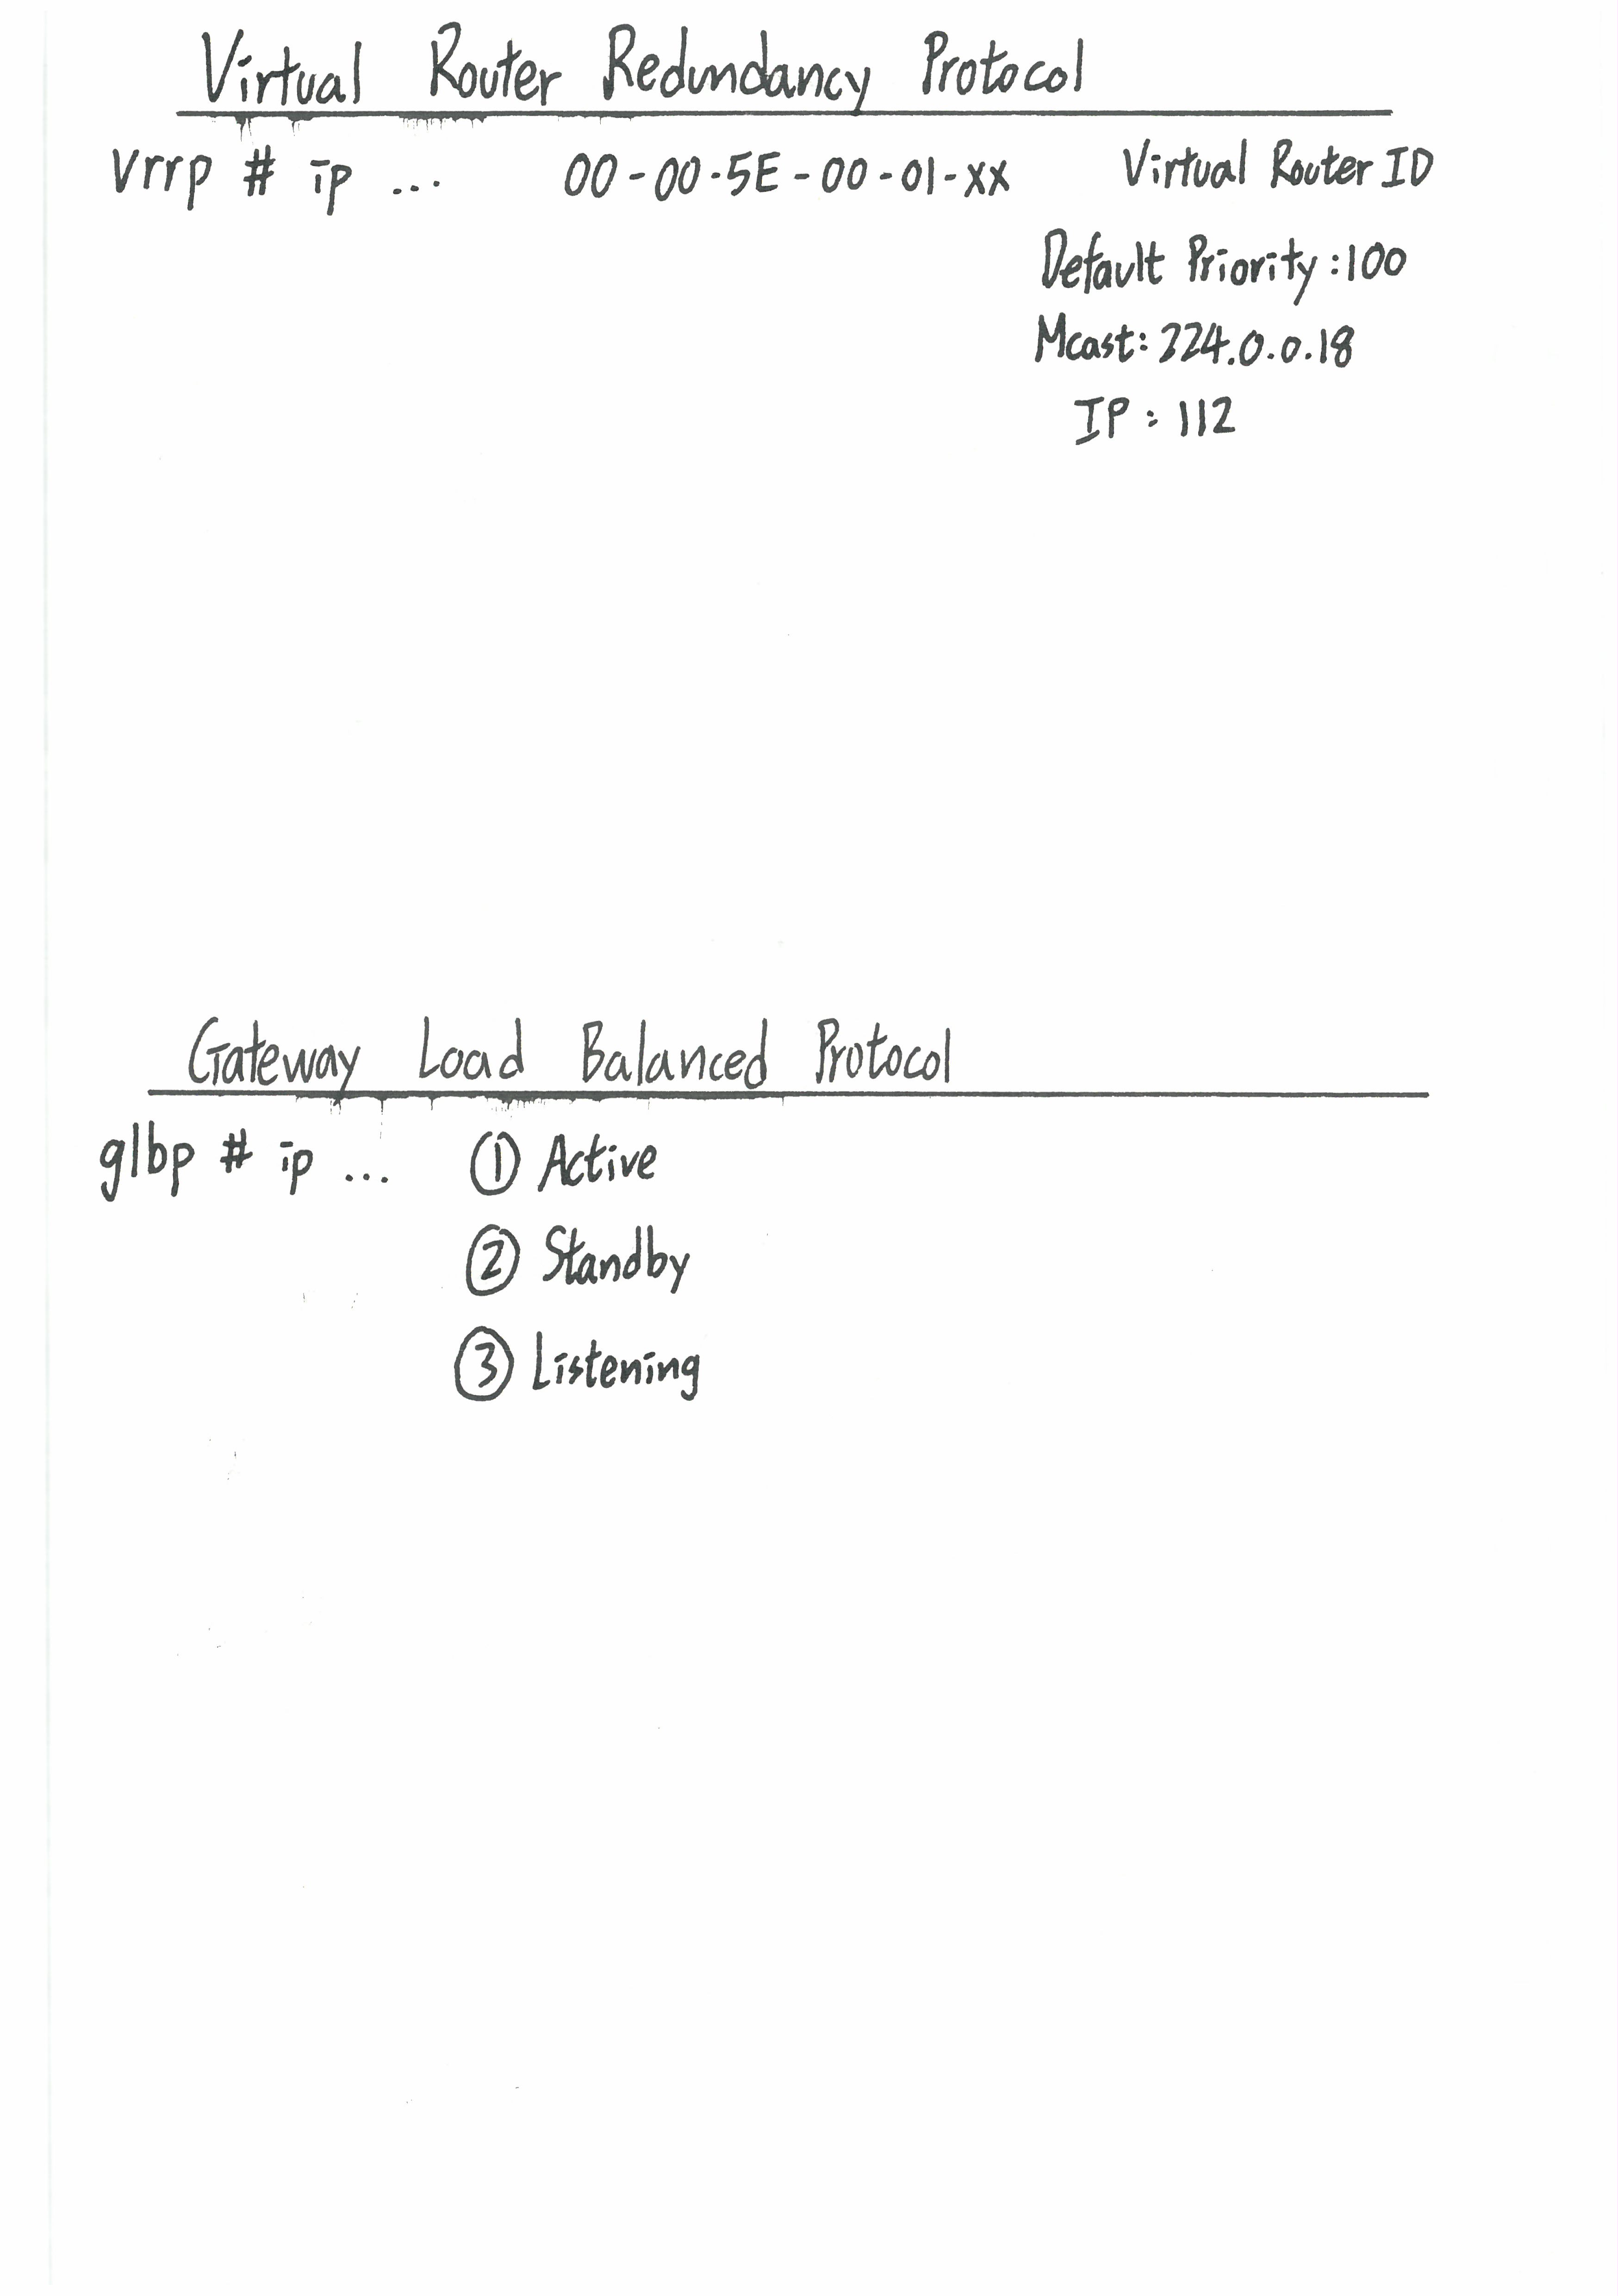 Virtual Router Redundancy Protocol
vrrp # ip ... 00-00-5E-00-01-XX Virtual Router ID
Default Priority:100
Mcast: 224.0.0.18
IP: 112
Gateway Load Balanced Protocol
glbp # ip ... ① Active
② Standby
③ Listening